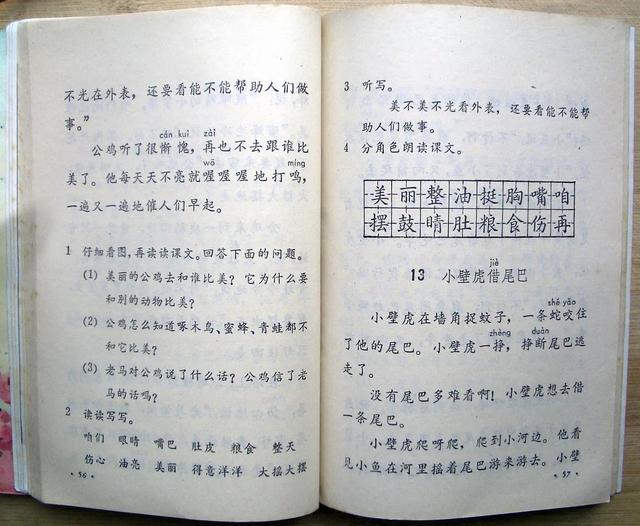 不光在外表，还要看能不能帮助人们做
事。”
cán kuì zài
公鸡听了很惭愧，再也不去跟谁比
wō míng
美了。他每天天不亮就喔喔喔地打鸣，
一遍又一遍地催人们早起。
1 仔细看图，再读读课文。回答下面的问题。
(1) 美丽的公鸡去和谁比美？它为什么要
和别的动物比美？
(2) 公鸡怎么知道啄木鸟、蜜蜂、青蛙都不
和它比美？
(3) 老马对公鸡说了什么话？公鸡信了老
马的话吗？
2 读读写写。
咱们 眼睛 嘴巴 肚皮 粮食 整天
伤心 油亮 美丽 得意洋洋 大摇大摆
· 56 ·
3 听写。
美不美不光看外表，还要看能不能帮
助人们做事。
4 分角色朗读课文。
美丽整油挺胸嘴咱
摆鼓晴肚粮食伤再
jiè
13 小壁虎借尾巴
shé yǎo
小壁虎在墙角捉蚊子，一条蛇咬住
zhèng duàn
了他的尾巴。小壁虎一挣，挣断尾巴逃
走了。
没有尾巴多难看啊！小壁虎想去借
一条尾巴。
小壁虎爬呀爬，爬到小河边。他看
见小鱼在河里摇着尾巴游来游去。小壁
· 57 ·